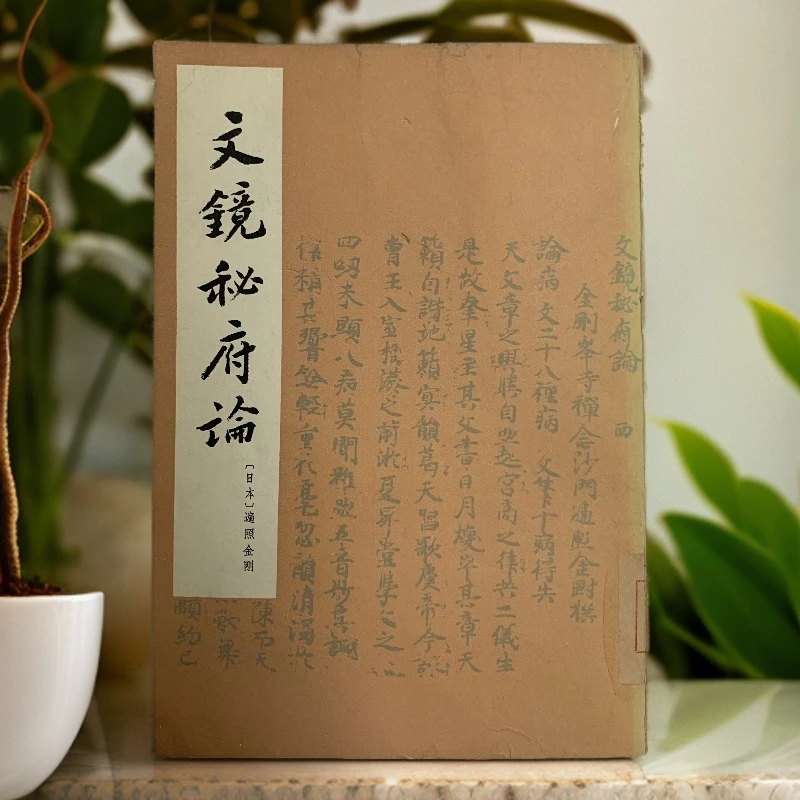 文鏡秘府論
〔日本〕遍照金剛
文鏡秘府論 西
金剛峯寺禪念沙門遍照金剛撰
論病 文二十八種病 文筆十病得失
夫文章之興與自然起宮商之律共二儀生
是故奎星主其文書日月煥乎其章天
籟自諧地籟冥韻葛天唱歌虞帝今
曹王入室摛藻之前游夏昇堂學文之
四紐未顯八病莫聞雖然五音妙其調
輕重於毫忽韻清濁於
顒約已